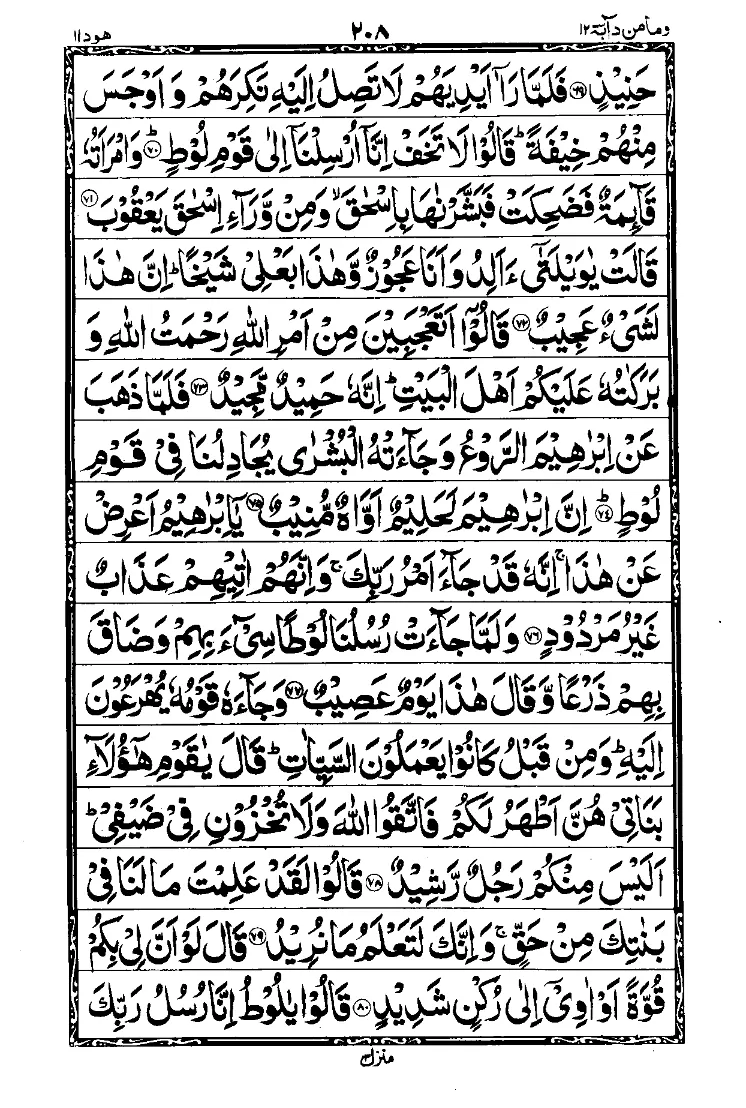 ومامن دآبة ١٢ ٢٠٨ هود ١١
حَنِيْذٍ ﴿٦٩﴾ فَلَمَّا رَاٰۤ اَيْدِيَهُمْ لَا تَصِلُ اِلَيْهِ نَكِرَهُمْ وَ اَوْجَسَ
مِنْهُمْ خِيْفَةً ؕ قَالُوْا لَا تَخَفْ اِنَّاۤ اُرْسِلْنَاۤ اِلٰى قَوْمِ لُوْطٍ ﴿٧٠﴾ؕ وَامْرَاَتُهٗ
قَآىِٕمَةٌ فَضَحِكَتْ فَبَشَّرْنٰهَا بِاِسْحٰقَ ۙ وَمِنْ وَّرَآءِ اِسْحٰقَ يَعْقُوْبَ ﴿٧١﴾
قَالَتْ يٰوَيْلَتٰٓى ءَاَلِدُ وَ اَنَا عَجُوْزٌ وَّهٰذَا بَعْلِىْ شَيْخًا ؕ اِنَّ هٰذَا
لَشَىْءٌ عَجِيْبٌ ﴿٧٢﴾ قَالُوْۤا اَتَعْجَبِيْنَ مِنْ اَمْرِ اللّٰهِ رَحْمَتُ اللّٰهِ وَ
بَرَكٰتُهٗ عَلَيْكُمْ اَهْلَ الْبَيْتِ ؕ اِنَّهٗ حَمِيْدٌ مَّجِيْدٌ ﴿٧٣﴾ فَلَمَّا ذَهَبَ
عَنْ اِبْرٰهِيْمَ الرَّوْعُ وَ جَآءَتْهُ الْبُشْرٰى يُجَادِلُنَا فِىْ قَوْمِ
لُوْطٍ ﴿٧٤﴾ؕ اِنَّ اِبْرٰهِيْمَ لَحَلِيْمٌ اَوَّاهٌ مُّنِيْبٌ ﴿٧٥﴾ يٰۤاِبْرٰهِيْمُ اَعْرِضْ
عَنْ هٰذَا ۚ اِنَّهٗ قَدْ جَآءَ اَمْرُ رَبِّكَ ۚ وَاِنَّهُمْ اٰتِيْهِمْ عَذَابٌ
غَيْرُ مَرْدُوْدٍ ﴿٧٦﴾ وَ لَمَّا جَآءَتْ رُسُلُنَا لُوْطًا سِىْٓءَ بِهِمْ وَ ضَاقَ
بِهِمْ ذَرْعًا وَّ قَالَ هٰذَا يَوْمٌ عَصِيْبٌ ﴿٧٧﴾ وَجَآءَهٗ قَوْمُهٗ يُهْرَعُوْنَ
اِلَيْهِ ؕ وَمِنْ قَبْلُ كَانُوْا يَعْمَلُوْنَ السَّيِّاٰتِ ؕ قَالَ يٰقَوْمِ هٰۤؤُلَآءِ
بَنَاتِىْ هُنَّ اَطْهَرُ لَكُمْ فَاتَّقُوا اللّٰهَ وَلَا تُخْزُوْنِ فِىْ ضَيْفِىْ ؕ
اَلَيْسَ مِنْكُمْ رَجُلٌ رَّشِيْدٌ ﴿٧٨﴾ قَالُوْا لَقَدْ عَلِمْتَ مَا لَنَا فِىْ
بَنٰتِكَ مِنْ حَقٍّ ۚ وَ اِنَّكَ لَتَعْلَمُ مَا نُرِيْدُ ﴿٧٩﴾ قَالَ لَوْ اَنَّ لِىْ بِكُمْ
قُوَّةً اَوْ اٰوِىْۤ اِلٰى رُكْنٍ شَدِيْدٍ ﴿٨٠﴾ قَالُوْا يٰلُوْطُ اِنَّا رُسُلُ رَبِّكَ
منزل ٣